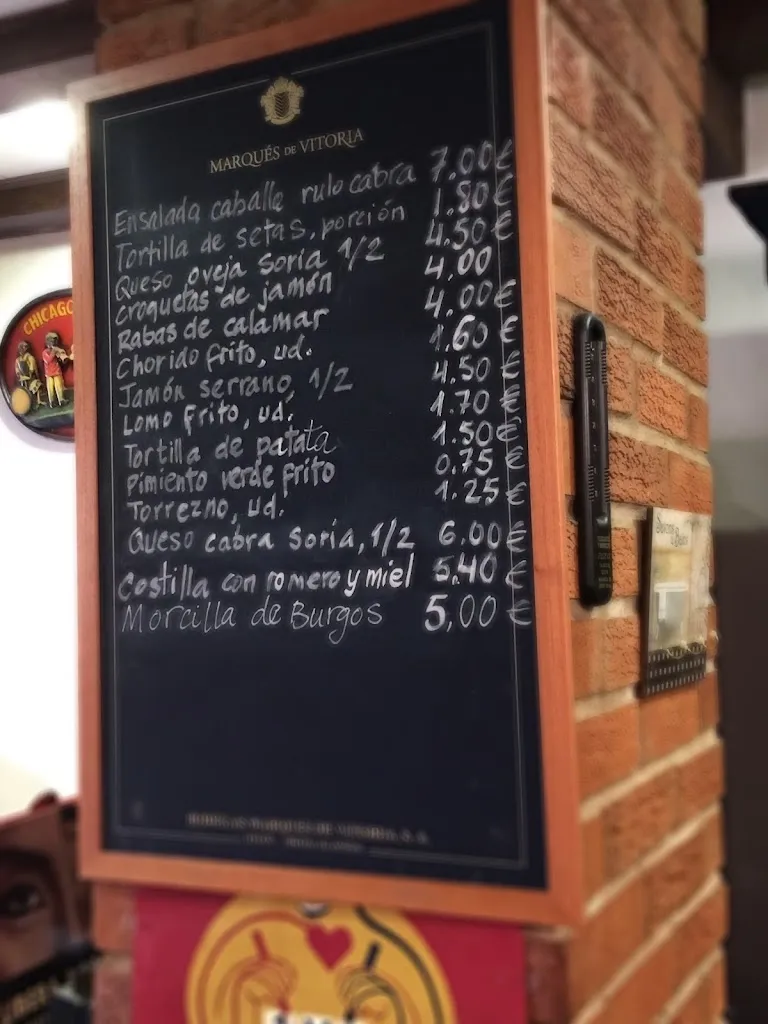 MARQUÉS DE VITORIA
Ensalada caballe rulo cabra 7.00€
Tortilla de setas, porción 1.80€
Queso oveja Soria 1/2 4.50€
Croquetas de jamón 4.00
Rabas de calamar 4.00€
Chorido frito, ud. 1.60€
Jamón serrano, 1/2 4.50€
Lomo frito, ud. 1.70€
Tortilla de patata 1.50€
Pimiento verde frito 0.75€
Torrezno, ud. 1.25€
Queso cabra Soria, 1/2 6.00€
Costilla con romero y miel 5.40€
Morcilla de Burgos 5,00€
BODEGAS MARQUES DE VITORIA, S.A.
CHICAGO